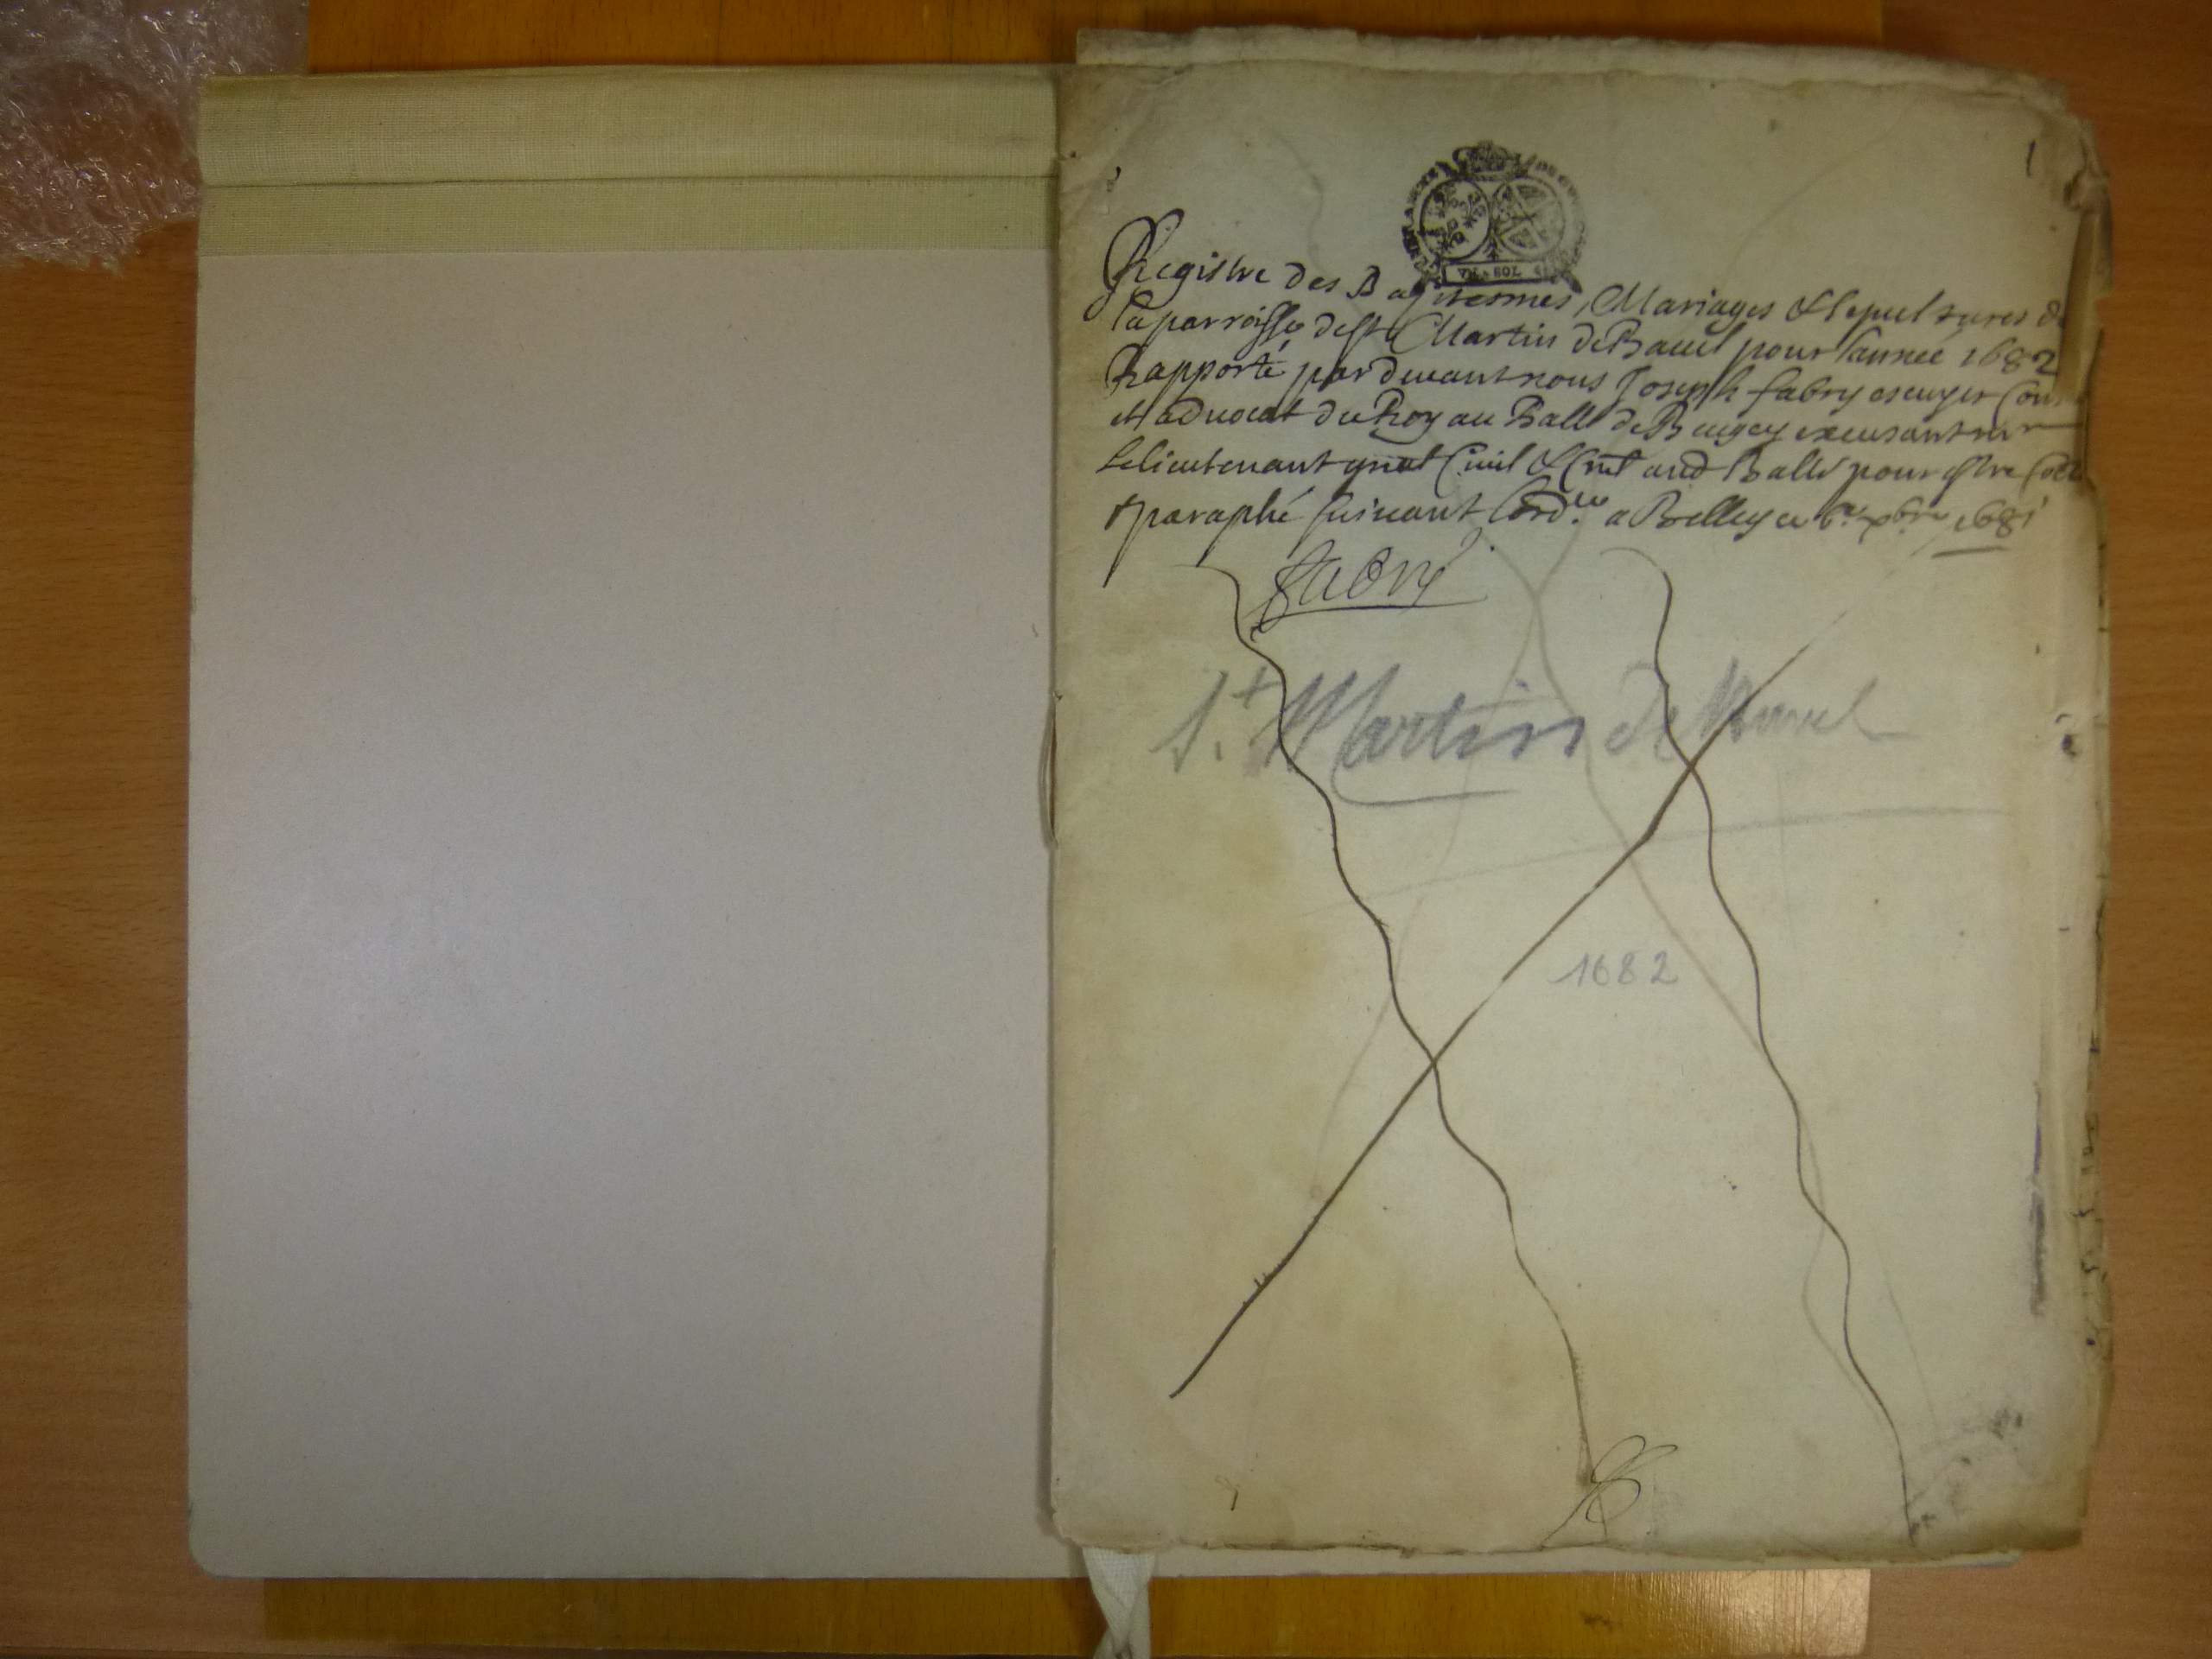 1
Registre des Baptesmes, Mariages & sepultures de
la parroisse de st Martin de Bauel pour lannée 1682
Rapporté pardeuant nous Joseph fabry escuyer Cons
et aduocat du Roy au Balle de Bugey exersant
le lieutenant gnal Ciuil & Crel aud Balle pour estre
& paraphé suiuant lord.ce a Belley ce 6.e xbre 1681
fabry
S.t Martin de Bavel
1682